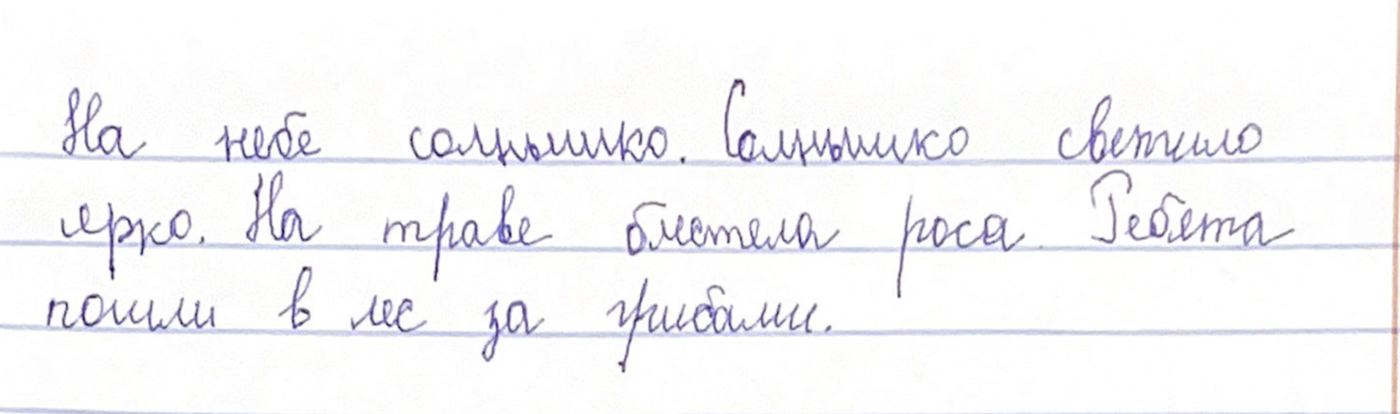 На небе солнышко. Солнышко светило
ярко. На траве блестела роса. Ребята
пошли в лес за грибами.